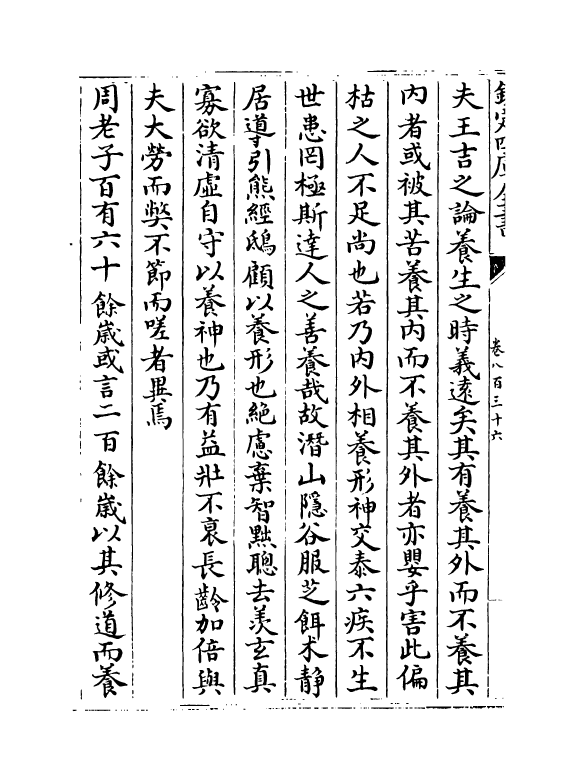 欽定四庫全書
卷八百三十六
夫王吉之論養生之時義遠矣其有養其外而不養其
内者或被其苦養其内而不養其外者亦嬰乎害此偏
枯之人不足尚也若乃内外相養形神交泰六疾不生
世患罔極斯達人之善養哉故潛山隱谷服芝餌术靜
居導引熊經鴟顧以養形也絶慮棄智黜聰去羨玄真
寡欲清虛自守以養神也乃有益壯不衰長齡加倍與
夫大勞而獘不節而嗟者異焉
周老子百有六十餘歳或言二百餘歳以其修道而養